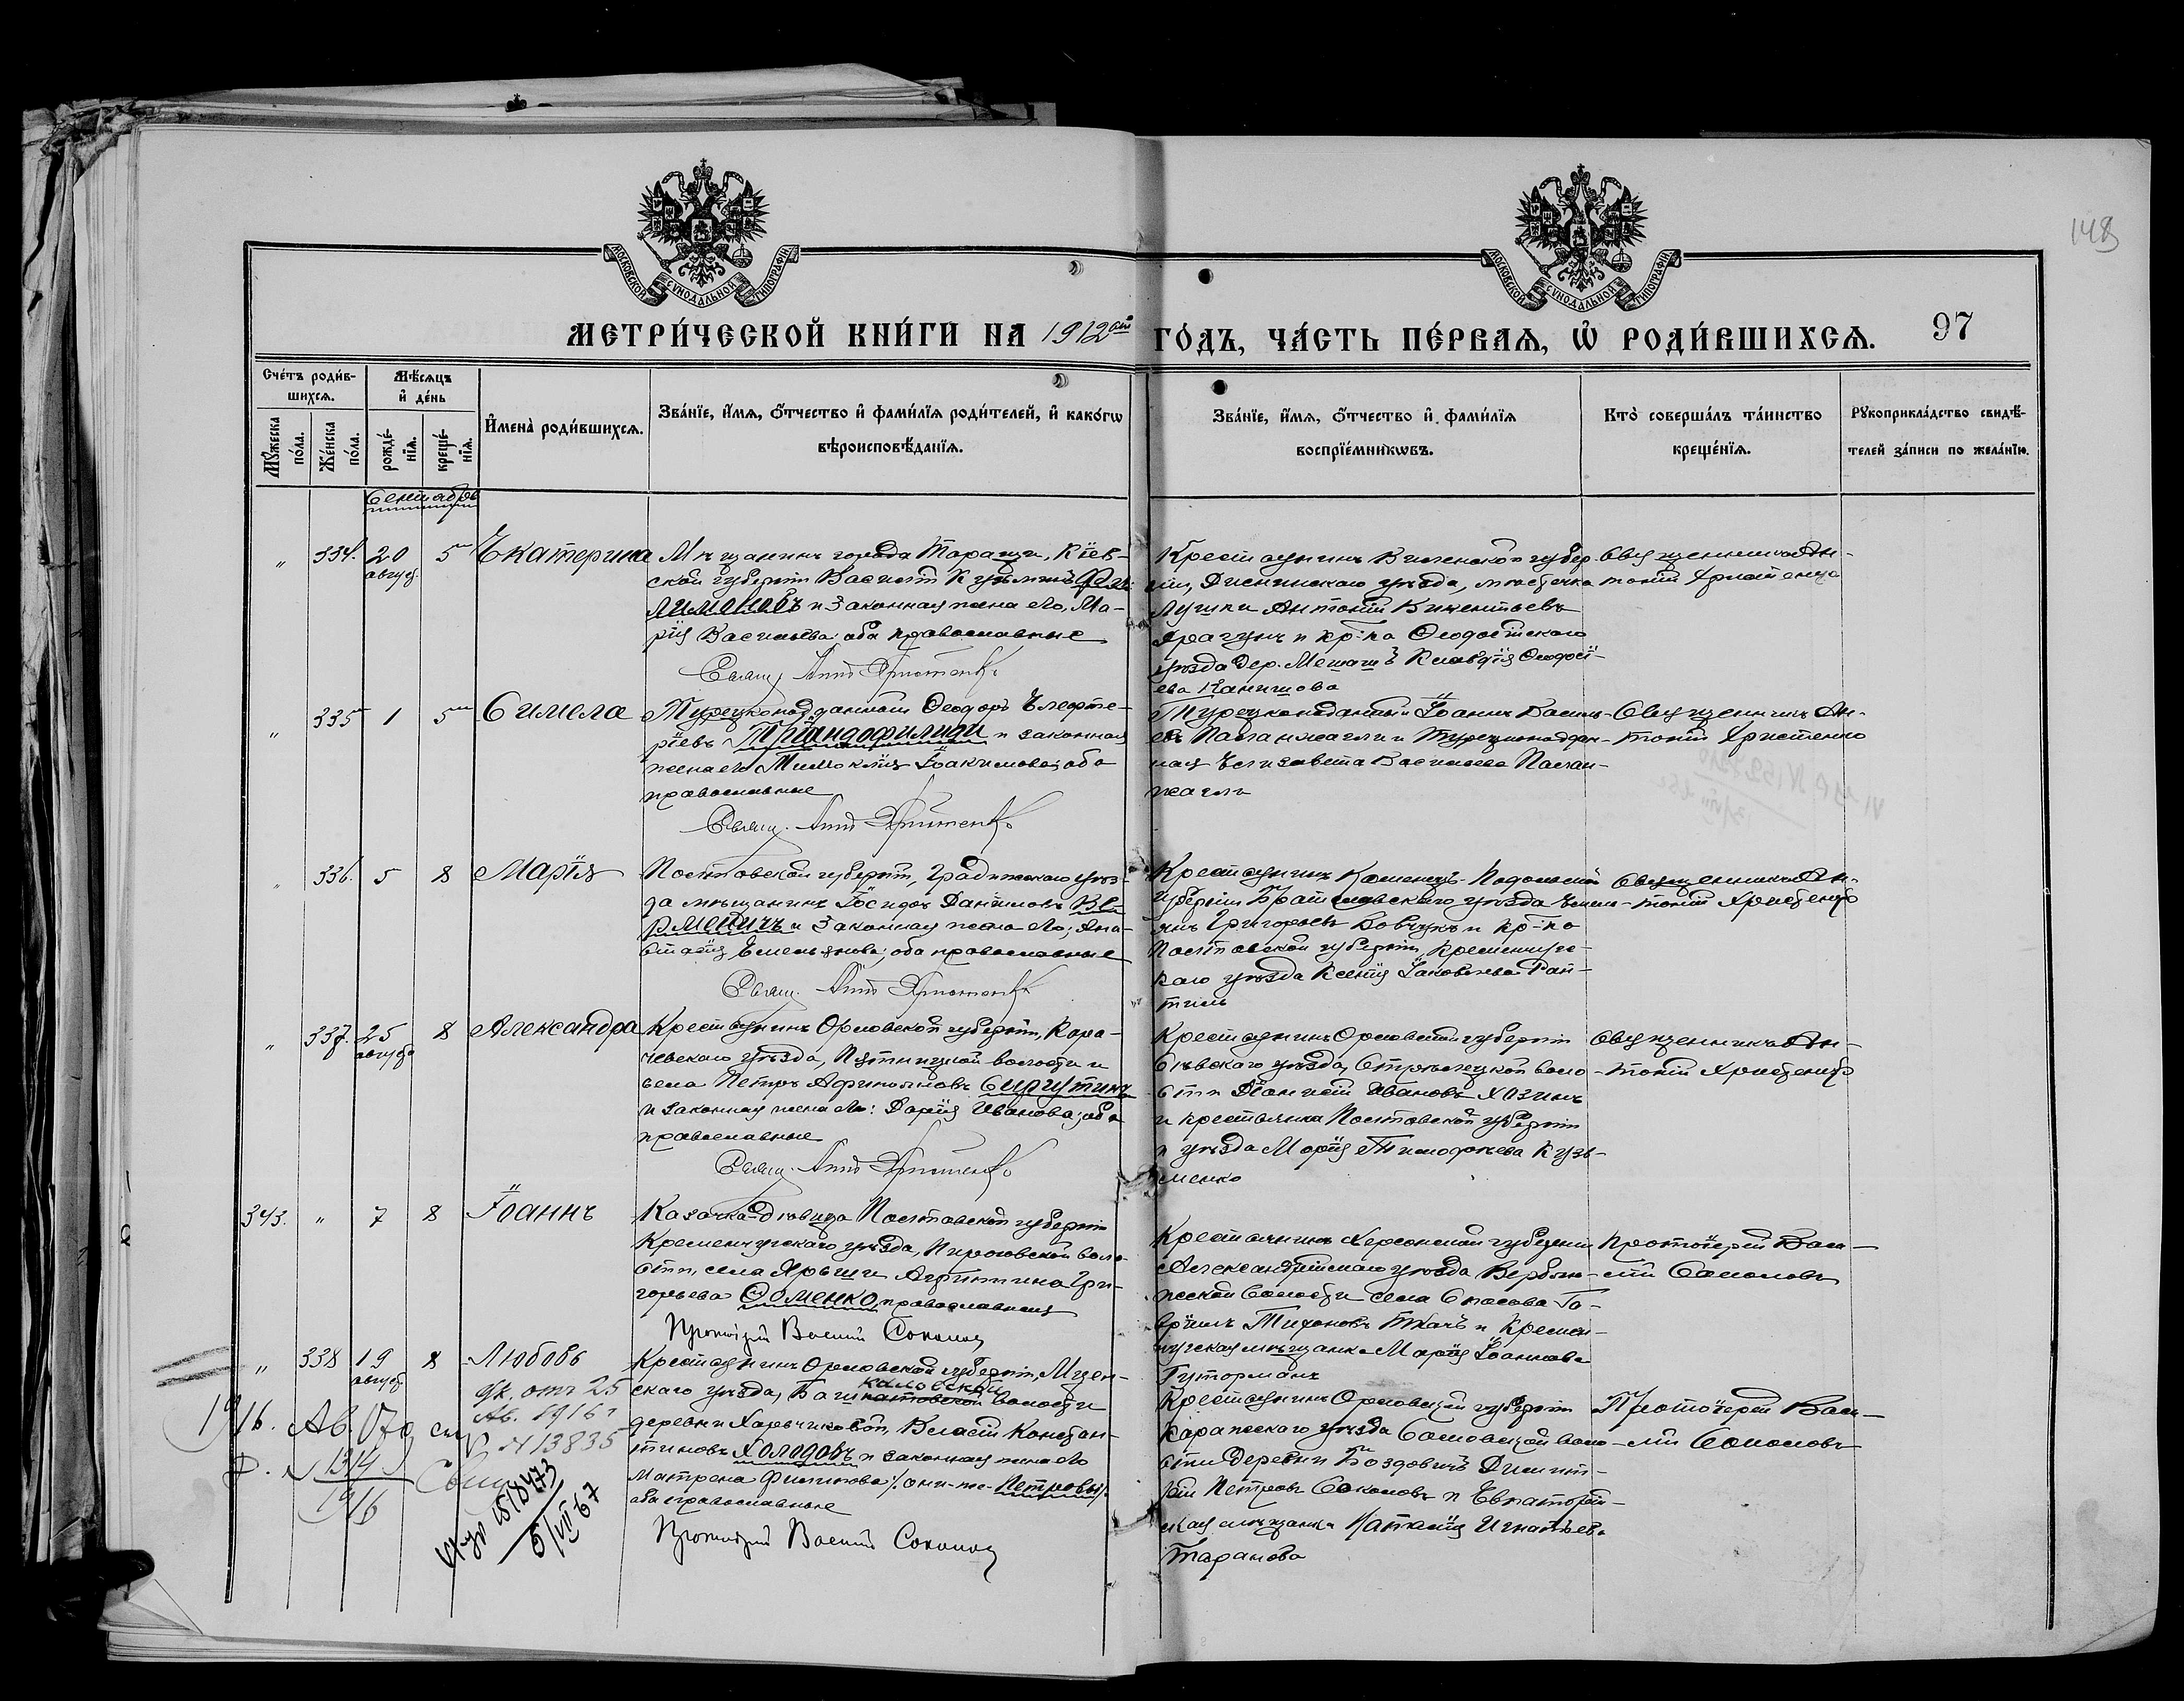 148
МОСКОВСКОЙ СѴНОДАЛЬНОЙ ТИПОГРАФІИ
МОСКОВСКОЙ СѴНОДАЛЬНОЙ ТИПОГРАФІИ
МЕТРИ́ЧЕСКОЙ КНИ́ГИ НА 1912ый ГО́ДЪ, ЧА́СТЬ ПЕ́РВАѦ, Ѡ҆ РОДИ́ВШИХСѦ. 97
Сче́тъ роди́в-
шихсѧ.
Мѣ́сѧцъ
и҆ де́нь
Мꙋ́жеска по́ла.
Же́нска по́ла.
рожде́-
нїѧ.
креще́-
нїѧ.
И҆мена̀ роди́вшихсѧ.
Зва́нїе, и҆́мѧ, ѻ҆́тчество и҆ фами́лїѧ роди́телей, и҆ како́гѡ
вѣроисповѣ́данїѧ.
Зва́нїе, и҆́мѧ, ѻ҆́тчество и҆ фами́лїѧ
воспрїе́мникѡвъ.
Кто̀ соверша́лъ та́инство
креще́нїѧ.
Рꙋкоприкла́дство свидѣ́-
телей за́писи по жела́нїю.
Сентябрь
" 334. 20 август. 5 Екатерина
Мѣщанинъ города Таращи, Кіев-
ской губерніи Василій Кузьминъ
и законная жена его, Ма-
рія Васильева; оба православные
Свящ. Антоній Христенко
Крестьянинъ Виленской губер-
ніи, Дисненскаго уѣзда, мѣстечка
Лушки Антоній Викентьевъ
Драгунъ и кр-ка Ѳеодосійскаго
уѣзда дер. Клавдія
ева
Священникъ Ан-
тоній Христенко
" 335 1 5 Симела
Турецкоподданный Ѳеодоръ Елефте-
ріевъ Тріандофилиди и законная
жена его Іоакимова; оба
православные
Свящ. Антоній Христенко
Турецкоподданный Іоаннъ Василь-
евъ и Турецкоподдан-
ная Елисавета Васильева
Священникъ Ан-
тоній Христенко
" 336. 5 8 Марія
Полтавской губерніи, Градижскаго уѣз-
да мѣщанинъ Ісидоръ Даніиловъ Ве-
рменичъ и законная жена его, Ана-
стасія Емельянова; оба православные
Свящ. Антоній Христенко
Крестьянинъ Каменецъ-Подольской
губерніи Брацлавскаго уѣзда Емель-
янъ Григорьевъ Вовчукъ и кр-ка
Полтавской губерніи, Кременчуг-
скаго уѣзда Ксенія Іаковлева
Священникъ Ан-
тоній Христенко
" 337. 25 августа 8 Александра
Крестьянинъ Орловской губерніи, Кара-
чевскаго уѣзда, волости и
села Петръ
и законная жена его: Дарія Иванова; оба
православные
Свящ. Антоній Христенко
Крестьянинъ Орловской губерніи
Сѣвскаго уѣзда, Стрѣлецкой воло-
сти Діонисій Ивановъ Хозинъ
и крестьянка Полтавской губерніи
и уѣзда Марія Тимофеева Кузь-
менко
Священникъ Ан-
тоній Христенко
343. " 7 8 Іоаннъ
Казачка-дѣвица Полтавской губерніи
Кременчугскаго уѣзда, Пироговской воло-
сти, села Агриппина Гри-
горьева Ѳоменко, православная
Протоіерей Василій Соколовъ
Крестьянинъ Херсонской губерніи
Александрійскаго уѣзда Вербл-
жской волости села Спасова Га-
вріилъ Тихоновъ Ткачъ и Кремен-
чугская мѣщанка Марія Іоаннова
Гуторманъ
Протоіерей Васи-
лій Соколовъ
" 338 19 август. 8 Любовь
Крестьянинъ Орловской губерніи, Мцен-
скаго уѣзда, волости
деревни Власій Констан-
тиновъ Холодовъ и законная жена его
Матрена Филиппова /: они-же Петровы:/
оба православные
Протоіерей Василій Соколовъ
Крестьянинъ Орловской губерніи
уѣзда воло-
сти деревни Димит-
рій Петровъ Соколовъ и Евпаторій-
ская мѣщанка Наталія Игнатьева
Таранова
Протоіерей Васи-
лій Соколовъ
отъ 25
Ав. 1916 г
№ 13835
1916. Ав.
1314
1916
1518473
5/VII 67